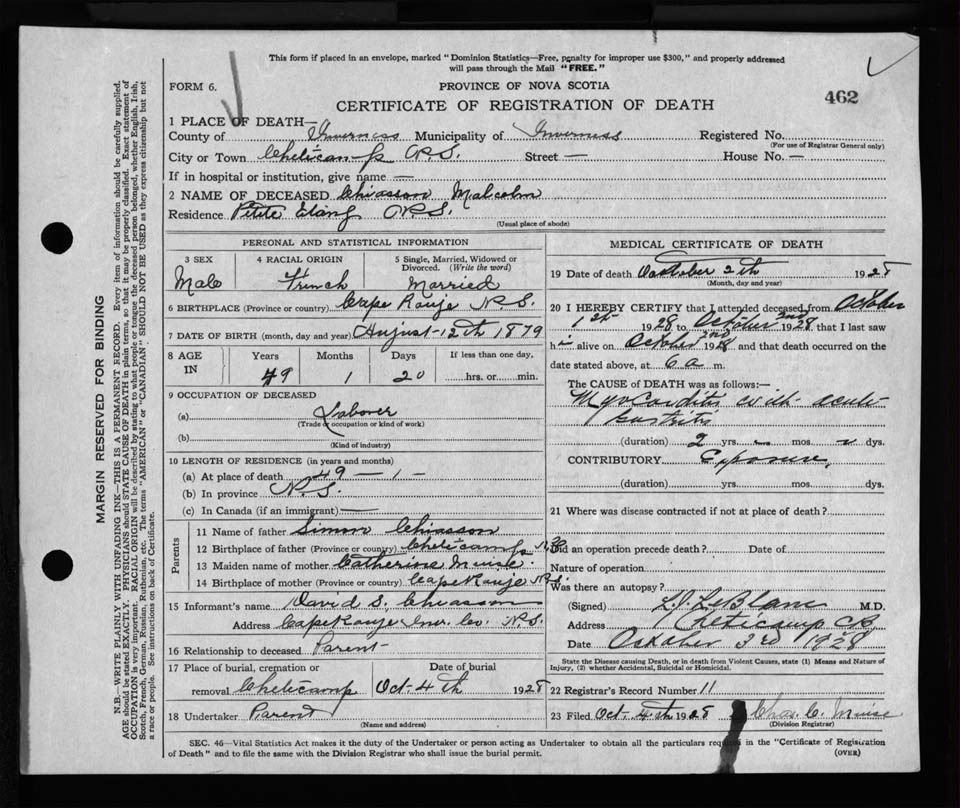 This form if placed in an envelope, marked "Dominion Statistics—Free, penalty for improper use $300," and properly addressed
will pass through the Mail "FREE."
FORM 6.
PROVINCE OF NOVA SCOTIA
462
CERTIFICATE OF REGISTRATION OF DEATH
1 PLACE OF DEATH—
County of Inverness Municipality of Inverness Registered No.
(For use of Registrar General only)
City or Town Cheticamp N.S. Street — House No. —
If in hospital or institution, give name —
2 NAME OF DECEASED Chiasson Malcolm
Residence Petite Etang N.S.
(Usual place of abode)
PERSONAL AND STATISTICAL INFORMATION
3 SEX 4 RACIAL ORIGIN 5 Single, Married, Widowed or
Divorced. (Write the word)
Male French Married
6 BIRTHPLACE (Province or country) Cape Rouje N.S.
7 DATE OF BIRTH (month, day and year) August 12th 1879
8 AGE IN Years Months Days If less than one day,
49 1 20 hrs. or min.
9 OCCUPATION OF DECEASED
(a) Laborer
(Trade or occupation or kind of work)
(b)
(Kind of industry)
10 LENGTH OF RESIDENCE (in years and months)
(a) At place of death 49 — 1 -
(b) In province N.S.
(c) In Canada (if an immigrant) —
Parents
11 Name of father Simon Chiasson
12 Birthplace of father (Province or country) Cheticamp N.S.
13 Maiden name of mother Catherine Muise
14 Birthplace of mother (Province or country) Cape Rouje N.S.
15 Informant's name David S. Chiasson
Address Cape Rouje Inver. Co. N.S.
16 Relationship to deceased Parent
17 Place of burial, cremation or Date of burial
removal Cheticamp Oct. 4th 1928
18 Undertaker Parent
(Name and address)
MEDICAL CERTIFICATE OF DEATH
19 Date of death October 2th 1928
(Month, day and year)
20 I HEREBY CERTIFY that I attended deceased from October
1st 1928 to October 2nd 1928, that I last saw
him alive on October 2nd 1928 and that death occurred on the
date stated above, at 6 a m.
The CAUSE OF DEATH was as follows:—
Myocarditis with acute
gastritis
(duration) 2 yrs. — mos. dys.
CONTRIBUTORY Exposure,
(duration) yrs. mos. dys.
21 Where was disease contracted if not at place of death?
Did an operation precede death? Date of
Nature of operation
Was there an autopsy?
(Signed) L.J. LeBlanc M.D.
Address Cheticamp CB
Date October 3rd 1928
State the Disease causing Death, or in death from Violent Causes, state (1) Means and Nature of
Injury, (2) whether Accidental, Suicidal or Homicidal.
22 Registrar's Record Number 11
23 Filed Oct. 4th 1928 Chas. C. Muise
(Division Registrar)
SEC. 46—Vital Statistics Act makes it the duty of the Undertaker or person acting as Undertaker to obtain all the particulars required in the "Certificate of Registration
of Death" and to file the same with the Division Registrar who shall issue the burial permit.
(OVER)
MARGIN RESERVED FOR BINDING
N.B.—WRITE PLAINLY WITH UNFADING INK—THIS IS A PERMANENT RECORD. Every item of information should be carefully supplied.
AGE should be stated EXACTLY. PHYSICIANS should STATE CAUSE OF DEATH in plain terms, so that it may be properly classified. Exact statement of
OCCUPATION is very important. RACIAL ORIGIN will be described by stating to what people or tongue the deceased person belonged, whether English, Irish,
Scotch, French, German, Russian, Ruthenian, etc. The terms "AMERICAN" or "CANADIAN" SHOULD NOT BE USED as they express citizenship but not
a race or people. See instructions on back of Certificate.